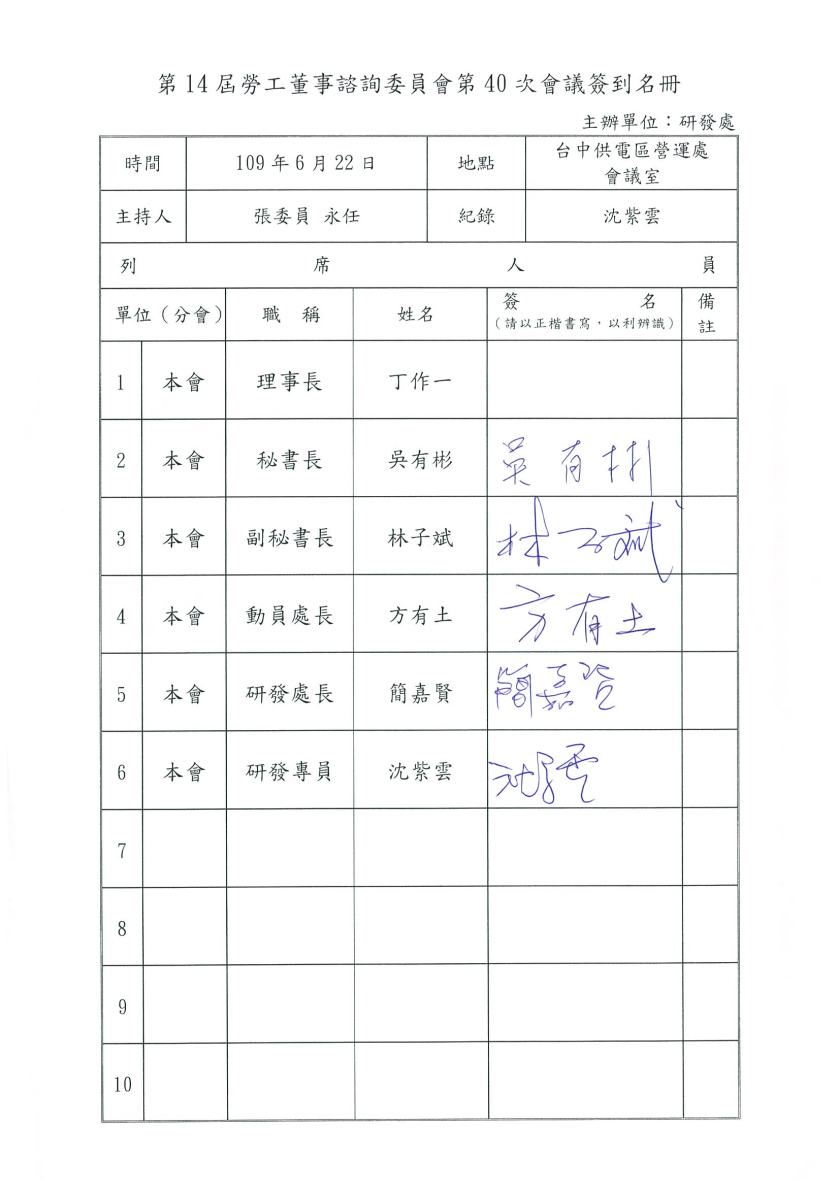 第14屆勞工董事諮詢委員會第40次會議簽到名冊
主辦單位：研發處
時間 109年6月22日 地點 台中供電區營運處
會議室
主持人 張委員 永任 紀錄 沈紫雲
列 席 人 員
單位（分會） 職 稱 姓名 簽 名 備
（請以正楷書寫，以利辨識） 註
1 本會 理事長 丁作一
2 本會 秘書長 吳有彬 吳有彬
3 本會 副秘書長 林子斌 林子斌
4 本會 動員處長 方有土 方有土
5 本會 研發處長 簡嘉賢 簡嘉賢
6 本會 研發專員 沈紫雲 沈紫雲
7
8
9
10